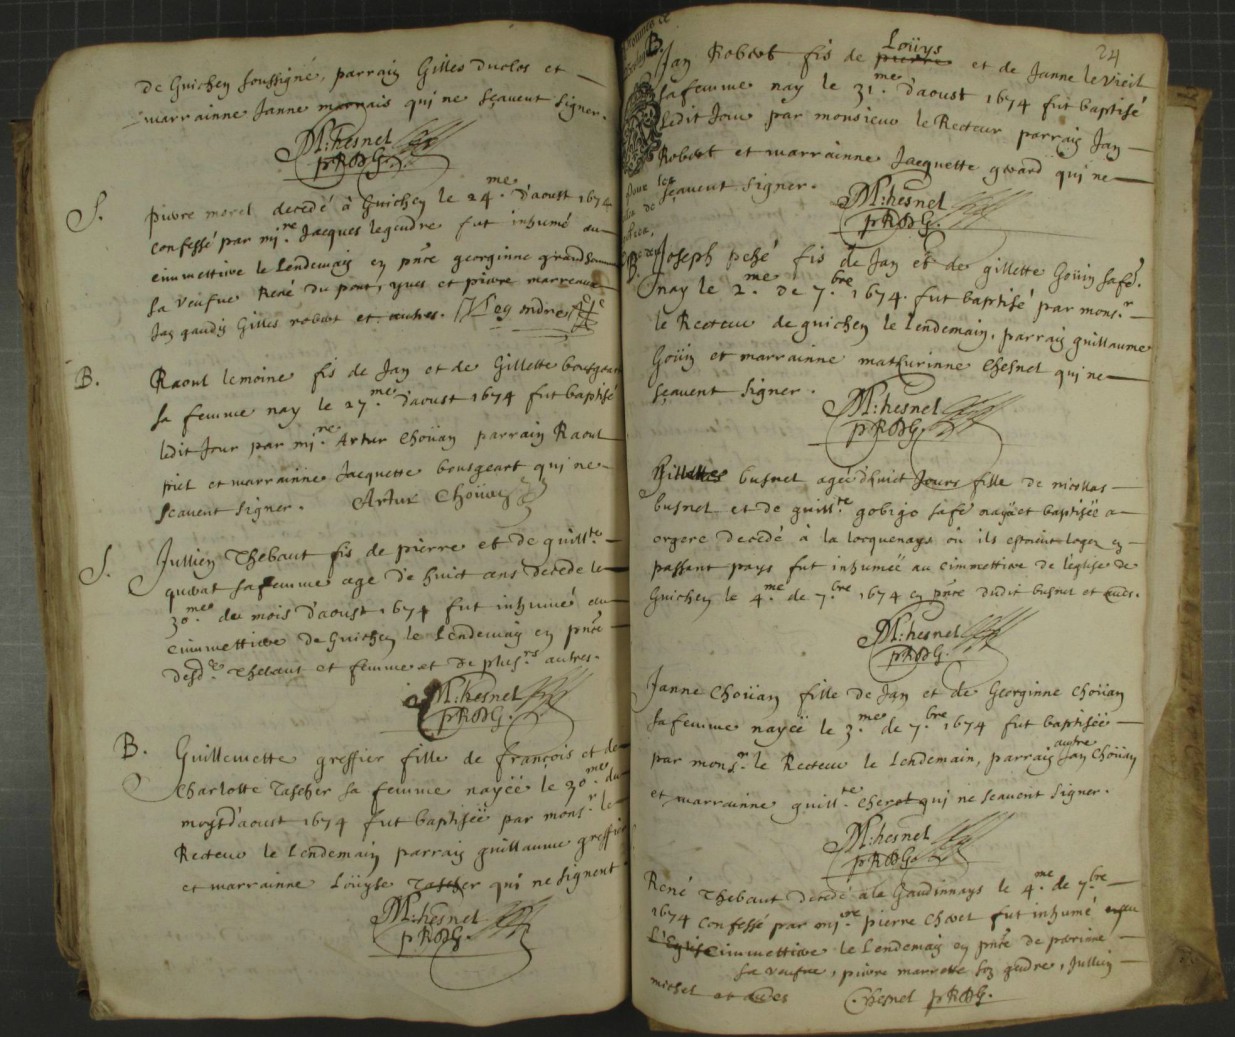 de Guichen soussigné, parrain Gilles duclos et
marrainne Janne marnais qui ne sçavent signer.
M: hesnel
pRDG.
S. pierre morel decedé à Guichen le 24.me d'aoust 1674
confessé par mi.re Jacques legendre fut inhumé au
cimmettire le Lendemain en pñce georginne grandson
sa veufue René du pont, yues et pierre
Jan gaudin Gilles robert et autres.
B. Raoul lemoine fis de Jan et de Gillette bousgeart
sa femme nay le 27.me d'aoust 1674 fut baptisé
ledit Jour par mi.re Artur Choüan parrain Raoul
piel et marrainne Jacquette bousgeart qui ne
sçavent signer. Artur Choüan
S. Jullien Thebaut fis de pierre et de guill.te
sa femme age de huict ans decede le
30.me de mois d'aoust 1674 fut inhumé au
cimmettire de Guichen le Lendemain en pñce
desd. Thebaut et femme et de plus.rs autres.
M: hesnel
pRDG.
B. Guillemette greffier fille de françois et de
Charlotte Tascher sa femme nayëe le 30.me du
moys d'aoust 1674 fut baptisëe par mons.r le
Recteur le Lendemain parrain guillaume greffier
et marrainne Loüyse Tascher qui ne signent
M: hesnel
pRDG.
24
B. Jan Robert fis de pierre Loüys et de Janne le Vieil
sa femme nay le 31.me d'aoust 1674 fut baptisé
ledit Jour par monsieur le Recteur parrain Jan
Robert et marrainne Jacquette guard qui ne
sçavent signer.
M: hesnel
pRDG.
B. Joseph pehé fis de Jan et de gillette Goüin sa fe.
nay le 2.me de 7.bre 1674. fut baptisé par mons.r
le Recteur de guichen le Lendemain, parrain guillaume
Goüin et marrainne mathurinne Chesnel qui ne
sçavent signer.
M: hesnel
pRDG.
busnel agée d'huict Jours fille de nicollas
busnel et de guill.te gobijo sa fe nayëe et baptisëe a
orgere decedé à la locquenays où ils estoient logez en
passant pays fut inhumëe au cimmettire de l'eglise de
Guichen le 4.me de 7.bre 1674 en pñce dudit busnel et
M: hesnel
pRDG.
Janne Choüan fille de Jan et de Georginne Choüan
sa femme nayëe le 3.me de 7.bre 1674 fut baptisëe
par mons.r le Recteur le Lendemain, parrain autre Jan Choüan
et marrainne guill.te Cherel qui ne sçavent signer.
M: hesnel
pRDG.
René Thebaut decedé a la Gaudinnays le 4.me de 7.bre
1674 confessé par mi.re pierre Chotel fut inhumé
L'Eglise cimmettire le Lendemain en pñce de perrine
sa veufue, pierre marrette son gendre, Jullien
michel et
Chesnel pRDG.